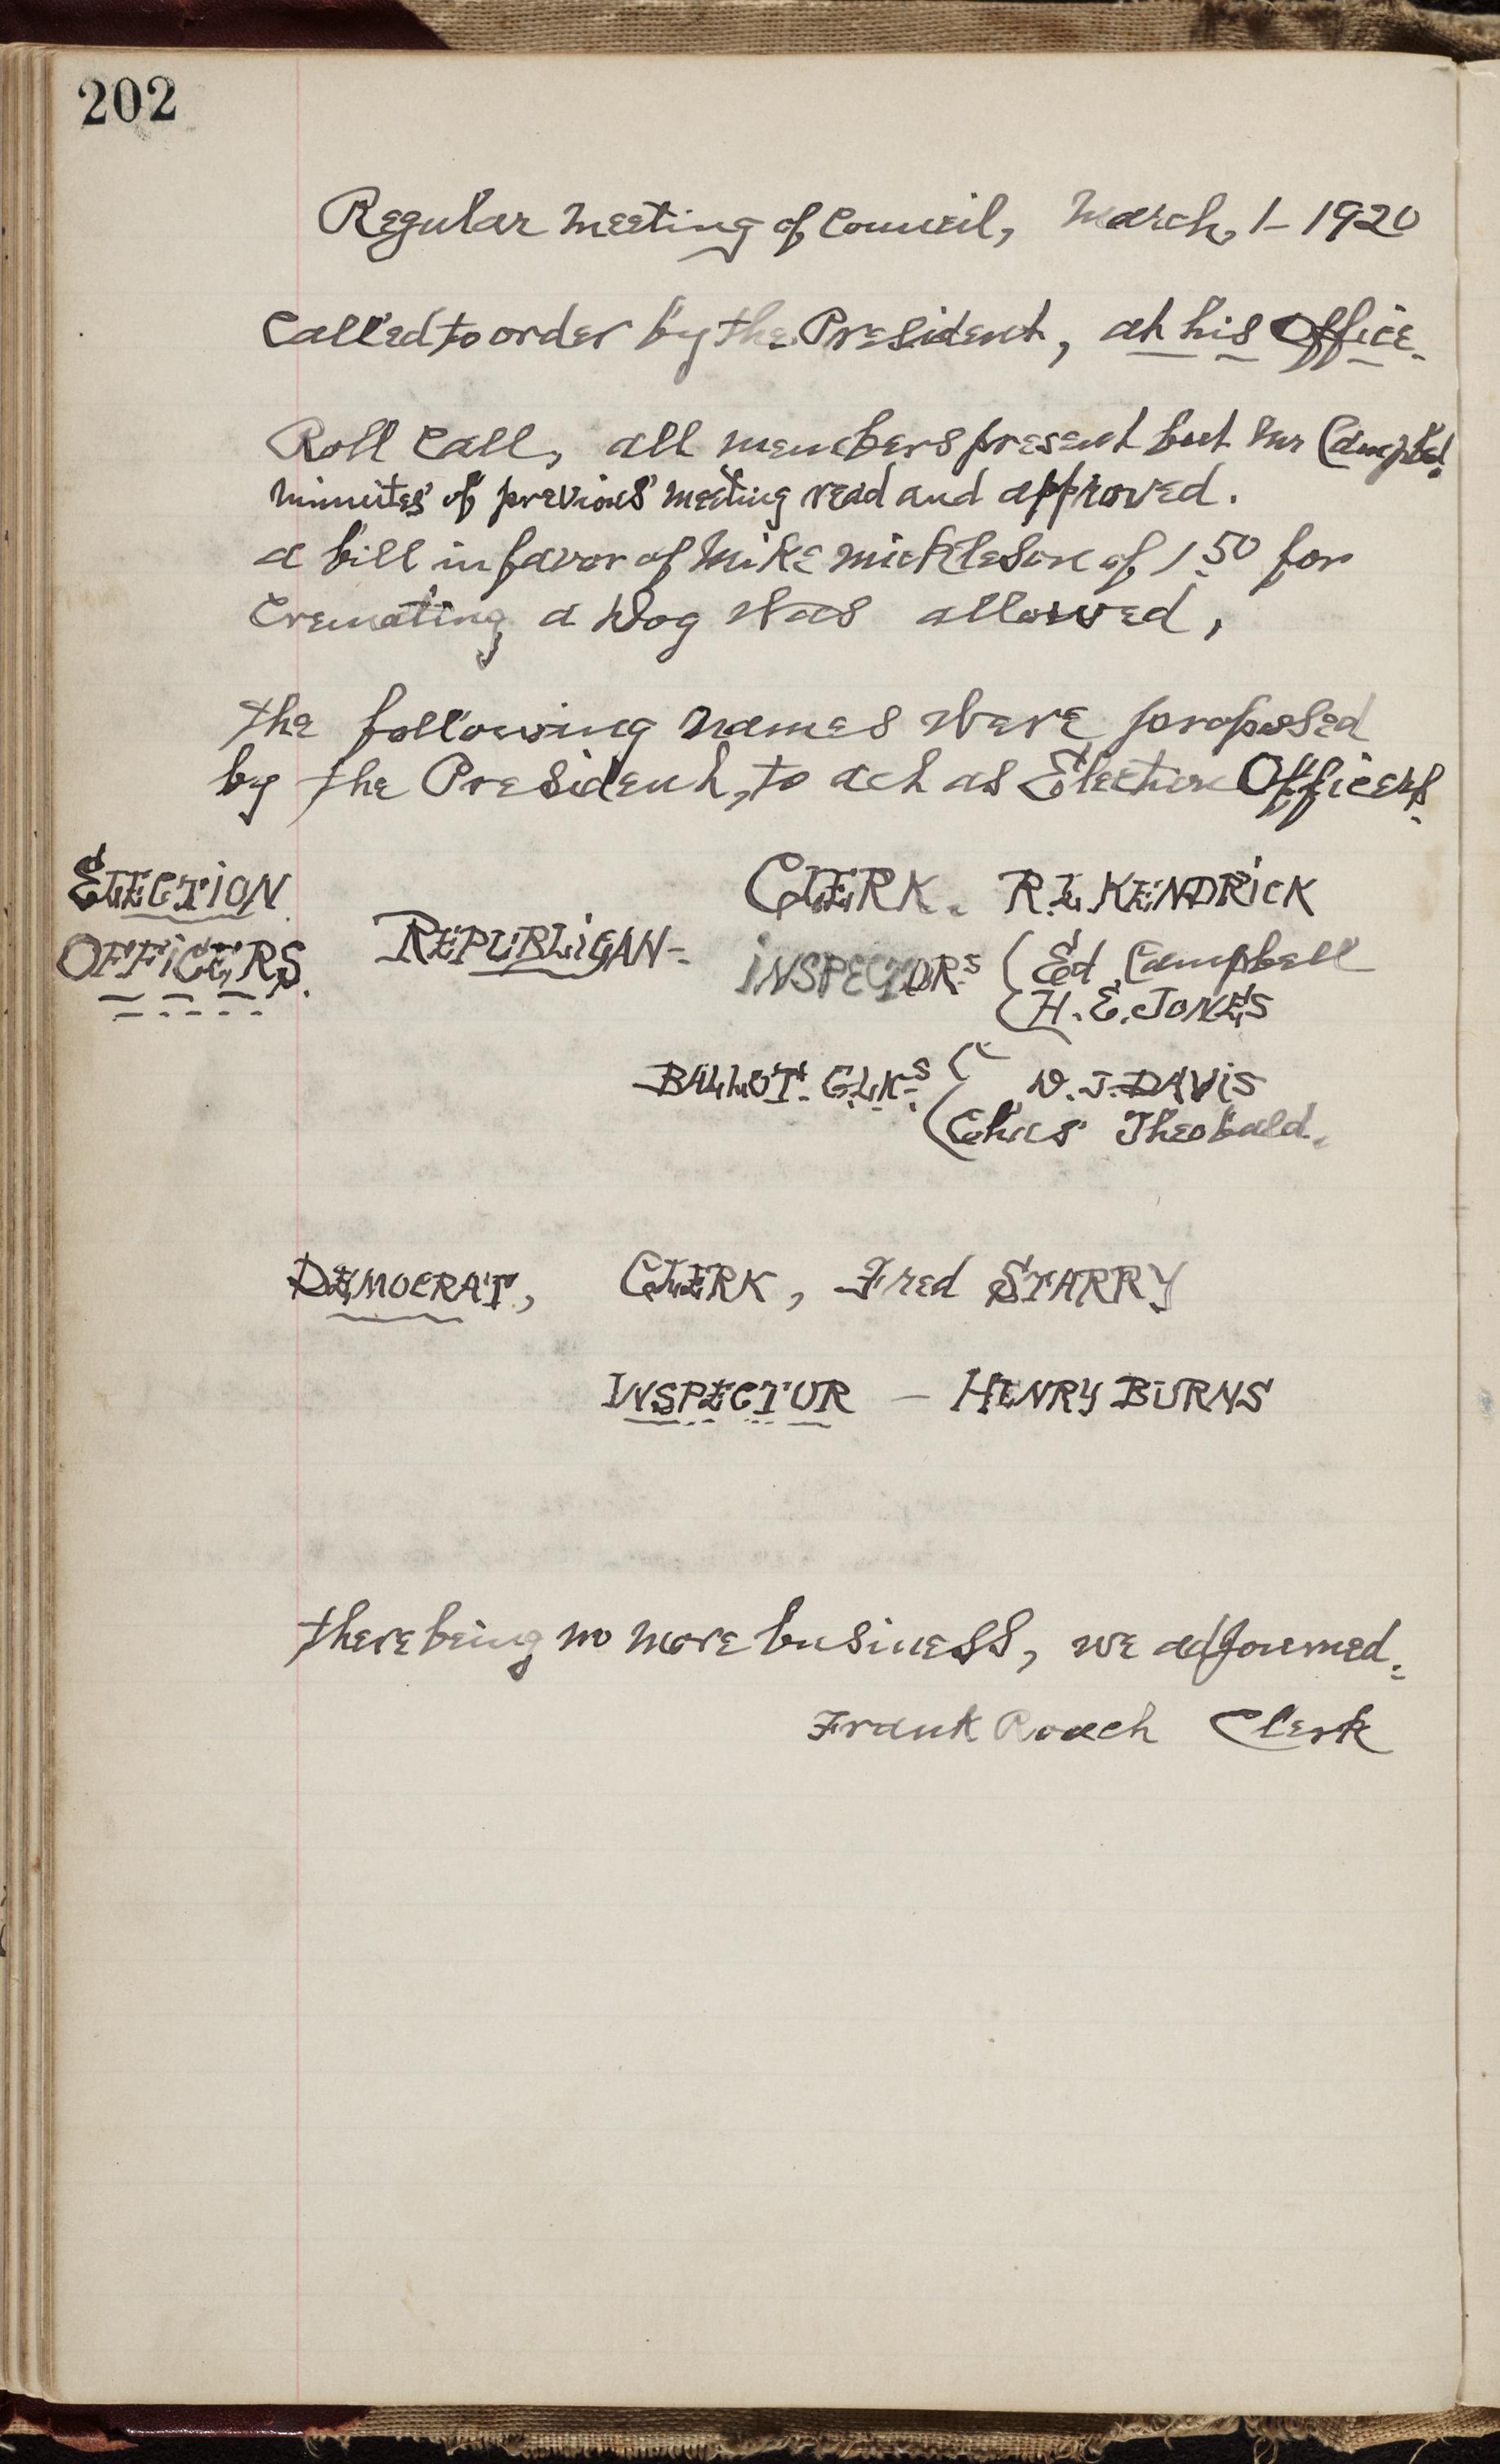 202
Regular meeting of Council, March, 1- 1920
Called to order by the President, at his Office.
Roll Call, all members present but Mr Campbell.
Minutes of previous meeting read and approved.
a bill in favor of Mike Mickleson of 1 50 for
Cremating a Dog Was allowed,
the following names Were proposed
by the President, to act as Election Officers.
ELECTION
OFFICERS.
REPUBLICAN-
CLERK. R.L. KENDRICK
INSPECTORS ( Ed. Campbell
( H. E. JONES
BALLOT. CLKS ( D. J. DAVIS
( Chas Theobald.
DEMOCRAT, CLERK, Fred STARRY
INSPECTOR - HENRY BURNS
there being no more business, we adjourned.
Frank Roach Clerk